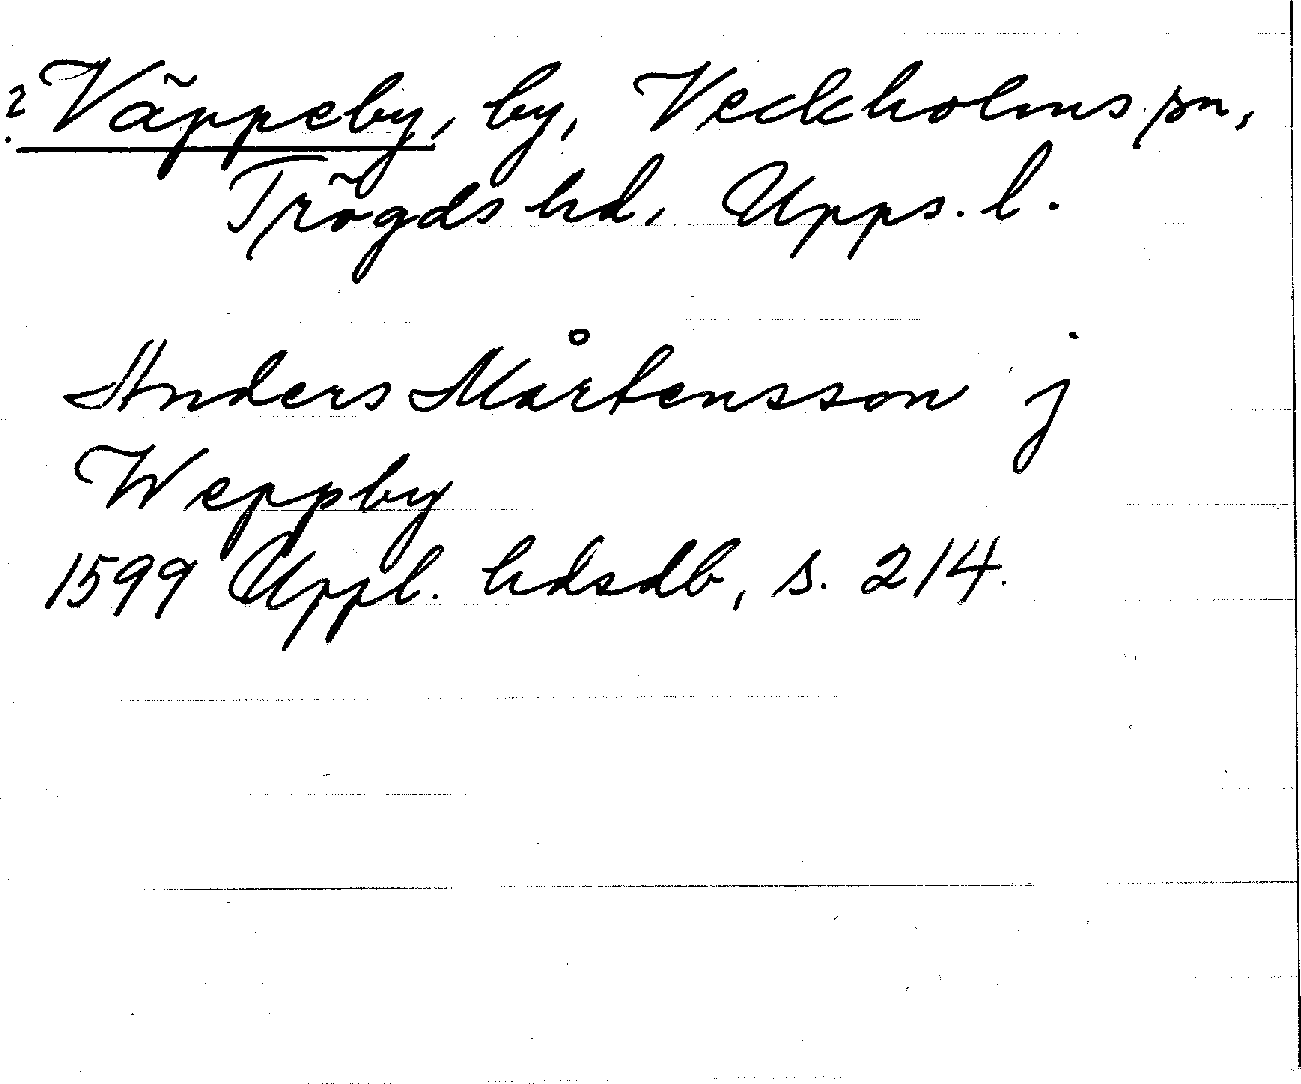 ? Väppeby, by, Veckholms sn,
Trögds hd, Upps. l.
Anders Mårtensson j
Weppby
1599 Uppl. hdsdb, s. 214.